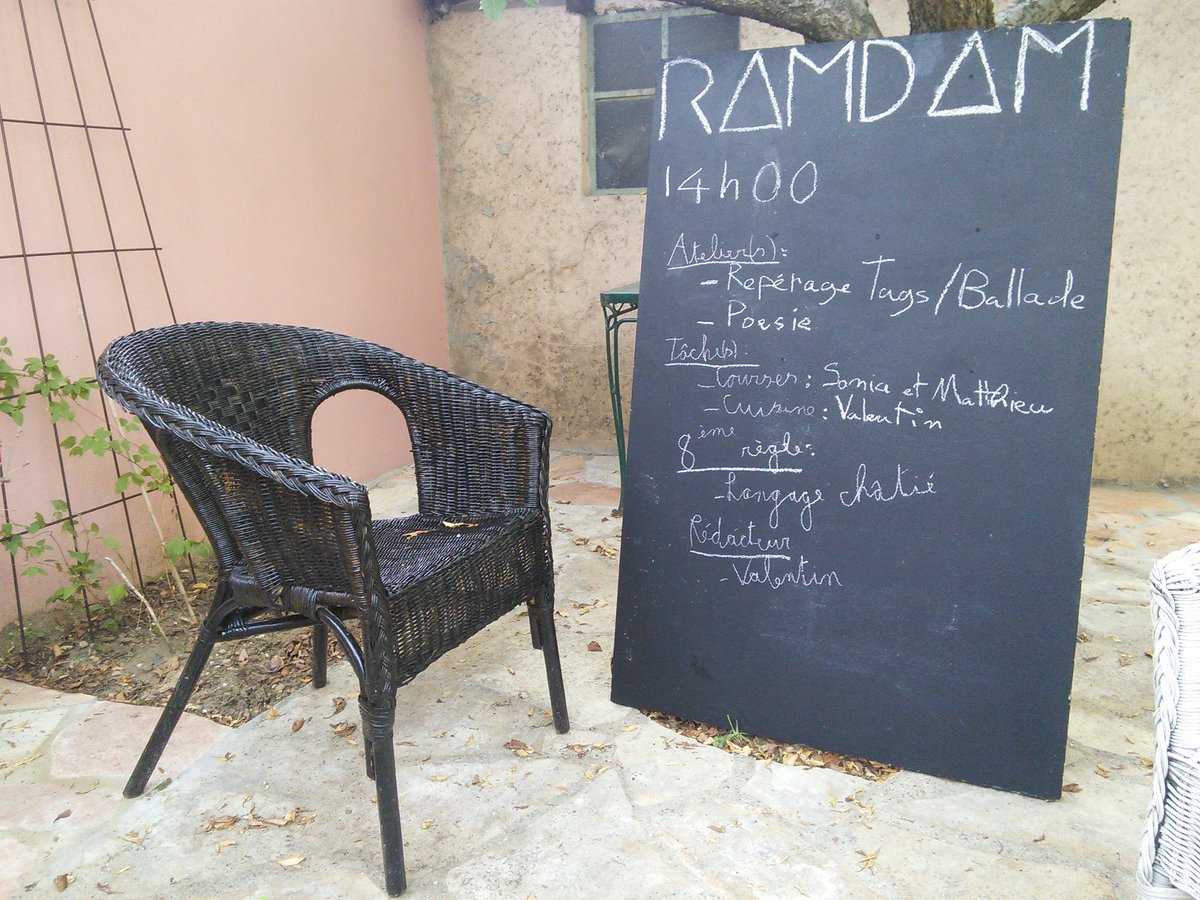 RAMDAM
14h00
Atelier(s):
- Repérage Tags/Ballade
- Poesie
Tâche(s).
- Courses: Sonia et Matthieu
- Cuisine: Valentin
8ème règle:
- Langage châtié
Rédacteur
- Valentin